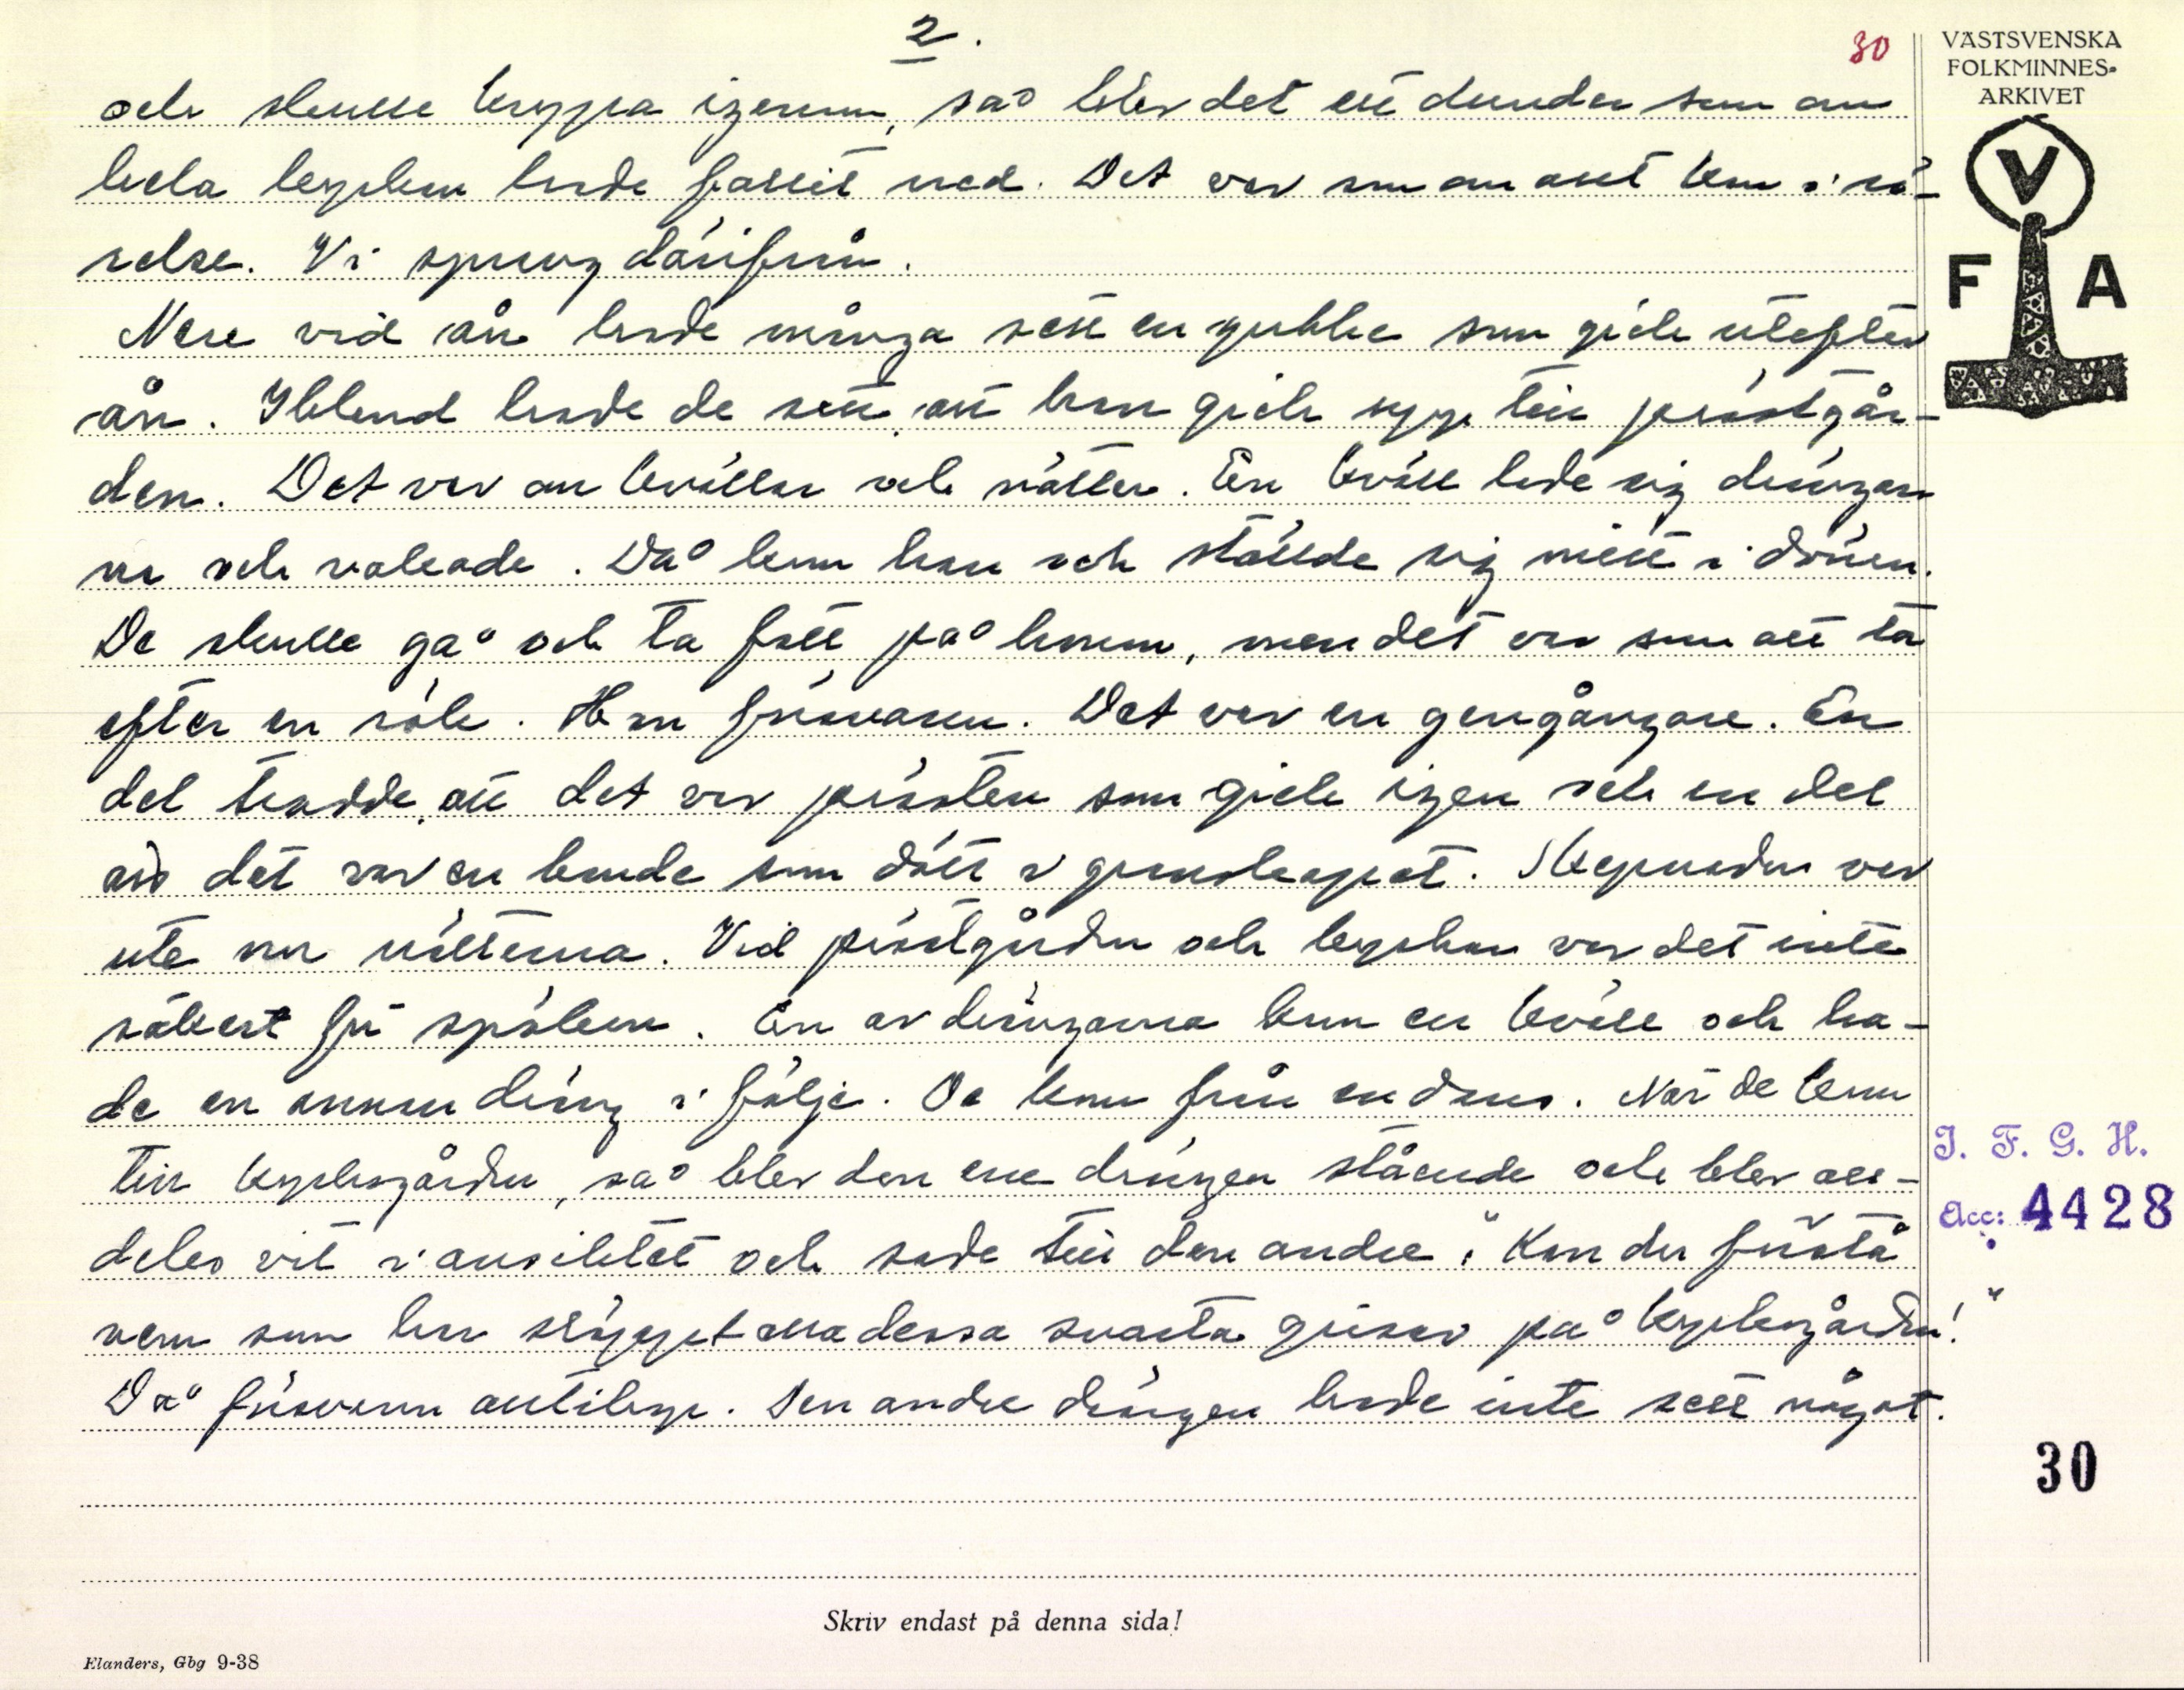 2.
30
och skulle krypa igenom, så blev det ett dunder som om
hela kyrkan hade fallit ned. Det var som om allt kom i rö-
relse. Vi sprang därifrån.
Nere vid ån hade många sett en gubbe som gick utefter
ån. Ibland hade de sett att han gick upp till prästgår-
den. Det var om kvällar och nätter. En kväll lade sig drängar-
na och vakade. Då kom han och ställde sig mitt i dörren.
De skulle gå och ta fatt på honom, men det var som att ta
efter en rök. Han försvann. Det var en gengångare. En
del trodde att det var prästen som gick igen och en del
att det var en bonde som dött i grannskapet. Skepnaden var
ute om nätterna. Vid prästgården och kyrkan var det inte
säkert för spöken. En av drängarna kom en kväll och ha-
de en annan dräng i följe. De kom från en dans. När de kom
till kyrkogården, så blev den ene drängen stående och blev all-
deles vit i ansiktet och sade till den andre: "Kan du förstå
vem som har släppt alla dessa svarta grisar på kyrkogården!"
Då försvann alltihop. Den andre drängen hade inte sett något.
VÄSTSVENSKA
FOLKMINNES-
ARKIVET
V
F A
I. F. G. H.
Acc: 4428
30
Skriv endast på denna sida!
Elanders, Gbg 9-38